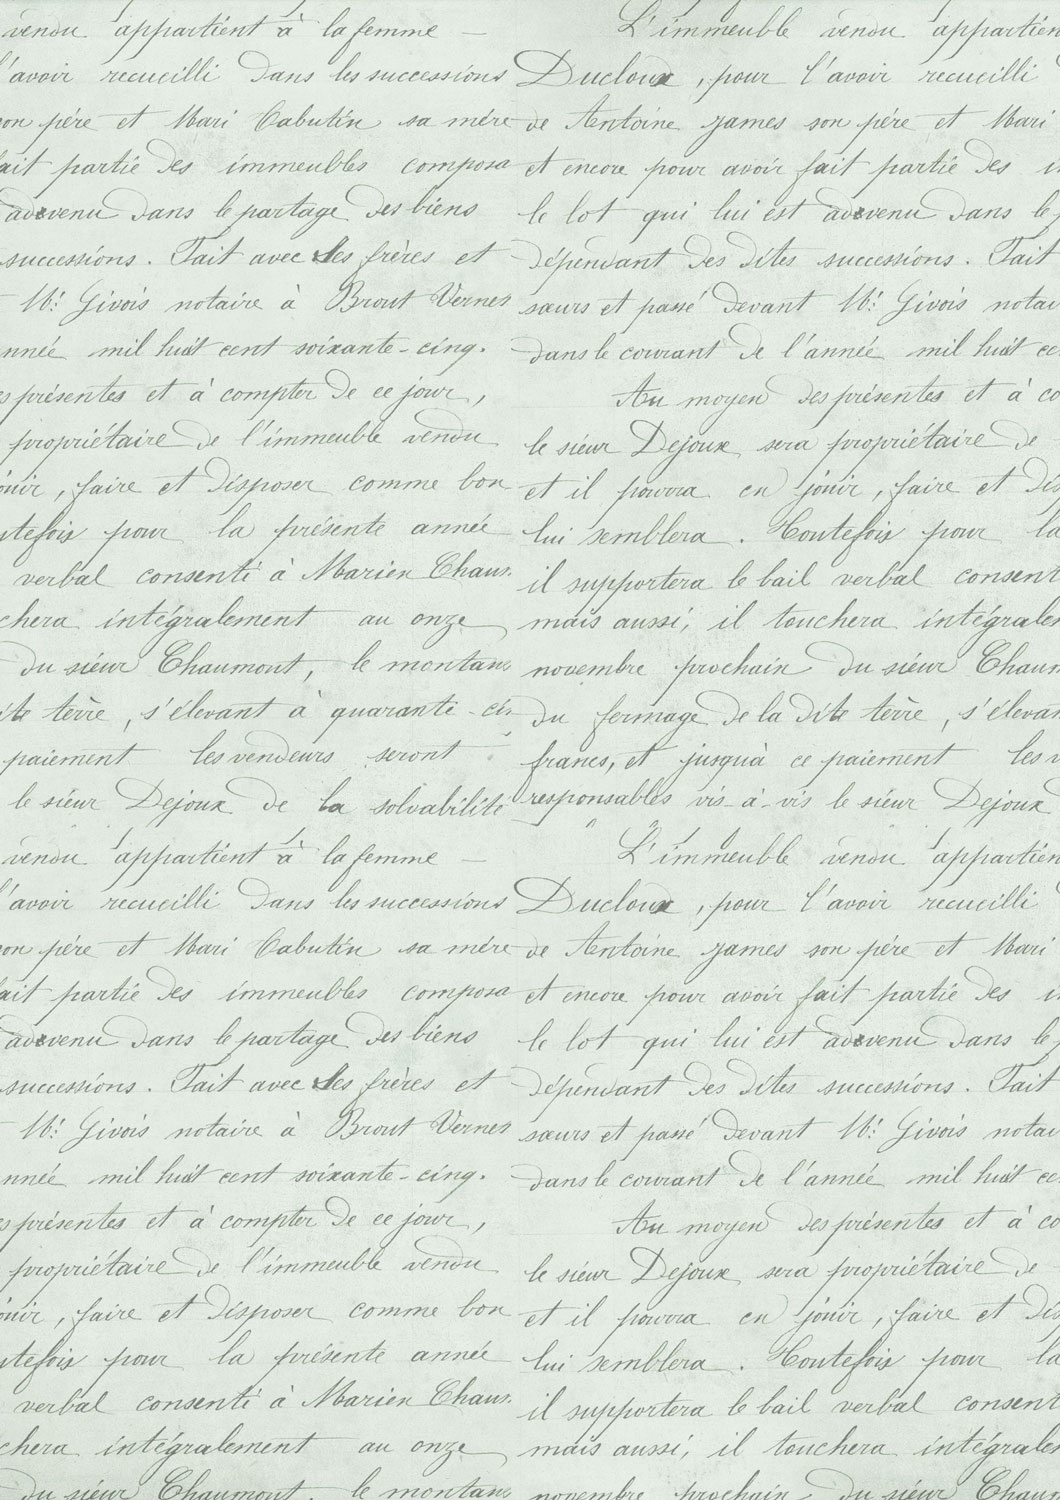 vendu appartient à la femme — L'immeuble vendu appartien
l'avoir recueilli dans les successions Ducloux, pour l'avoir recueilli
son père et Mari Cabutin sa mère de Antoine James son père et Mari
fait partie des immeubles composa et encore pour avoir fait partie des
advenu dans le partage des biens le lot qui lui est advenu dans le
successions. Fait avec les frères et dépendant des dites successions. Fait
Me Givois notaire à Brout Vernes sœurs et passé devant Me Givois notai
nnée mil huit cent soixante-cinq. dans le courant de l'année mil huit ce
es présentes et à compter de ce jour, Au moyen des présentes et à co
propriétaire de l'immeuble vendu le sieur Dejoux sera propriétaire de
ouir, faire et disposer comme bon et il pourra en jouir, faire et dis
utefois pour la présente année lui semblera. Toutefois pour la
verbal consenti à Marien Chau il supportera le bail verbal consent
chera intégralement au onze mais aussi, il touchera intégralem
du sieur Chaumont, le montant novembre prochain du sieur Chaum
ite terre, s'élevant à quarante-cin du fermage de la dite terre, s'élevan
paiement les vendeurs seront francs, et jusquà ce paiement les v
le sieur Dejoux de la solvabilité responsables vis-à-vis le sieur Dejoux
vendu appartient à la femme — L'immeuble vendu appartien
l'avoir recueilli dans les successions Ducloux, pour l'avoir recueilli
son père et Mari Cabutin sa mère de Antoine James son père et Mari
fait partie des immeubles composa et encore pour avoir fait partie des
advenu dans le partage des biens le lot qui lui est advenu dans le
successions. Fait avec les frères et dépendant des dites successions. Fait
Me Givois notaire à Brout Vernes sœurs et passé devant Me Givois notai
nnée mil huit cent soixante-cinq. dans le courant de l'année mil huit ce
es présentes et à compter de ce jour, Au moyen des présentes et à co
propriétaire de l'immeuble vendu le sieur Dejoux sera propriétaire de
ouir, faire et disposer comme bon et il pourra en jouir, faire et dis
utefois pour la présente année lui semblera. Toutefois pour la
verbal consenti à Marien Chau il supportera le bail verbal consent
chera intégralement au onze mais aussi, il touchera intégralem
du sieur Chaumont, le montant novembre prochain du sieur Chaum